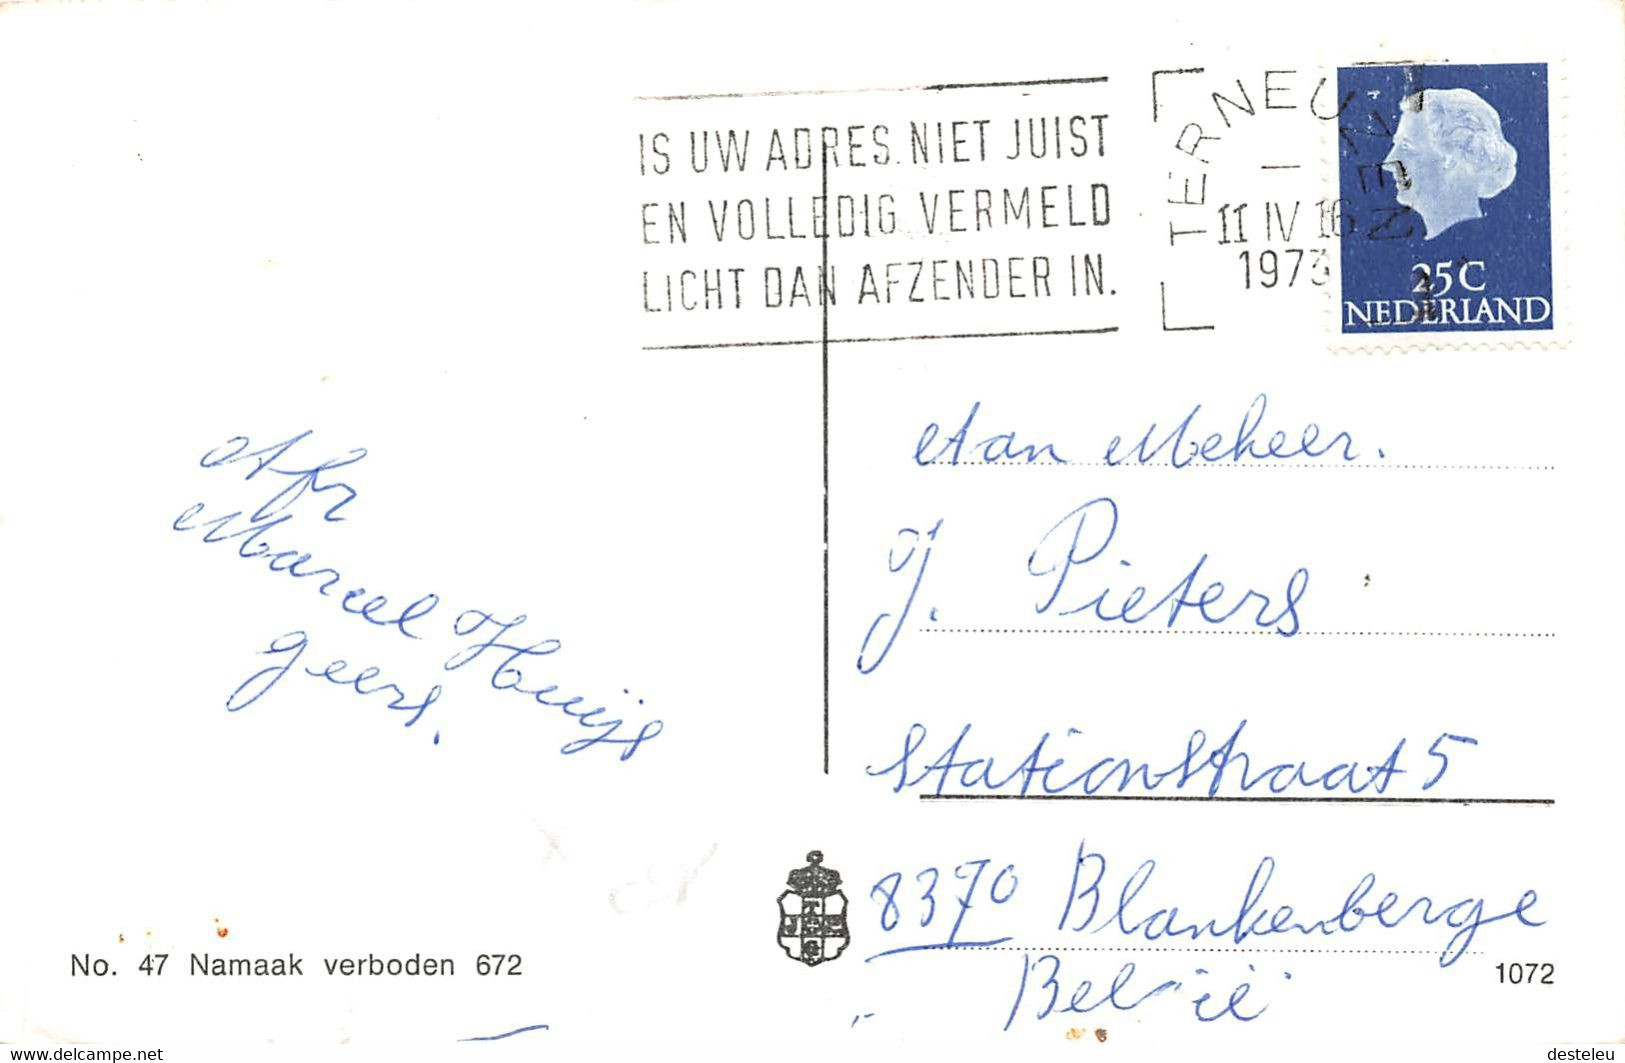 IS UW ADRES NIET JUIST
EN VOLLEDIG VERMELD
LICHT DAN AFZENDER IN.
TERNEUZEN
11 IV 16
1973
25C
NEDERLAND
Afz
Marcel Huijs
geers.
Aan Meheer.
J. Pieters
Stationstraat 5
8370 Blankenberge
België
No. 47 Namaak verboden 672
1072
www.delcampe.net
desteleu